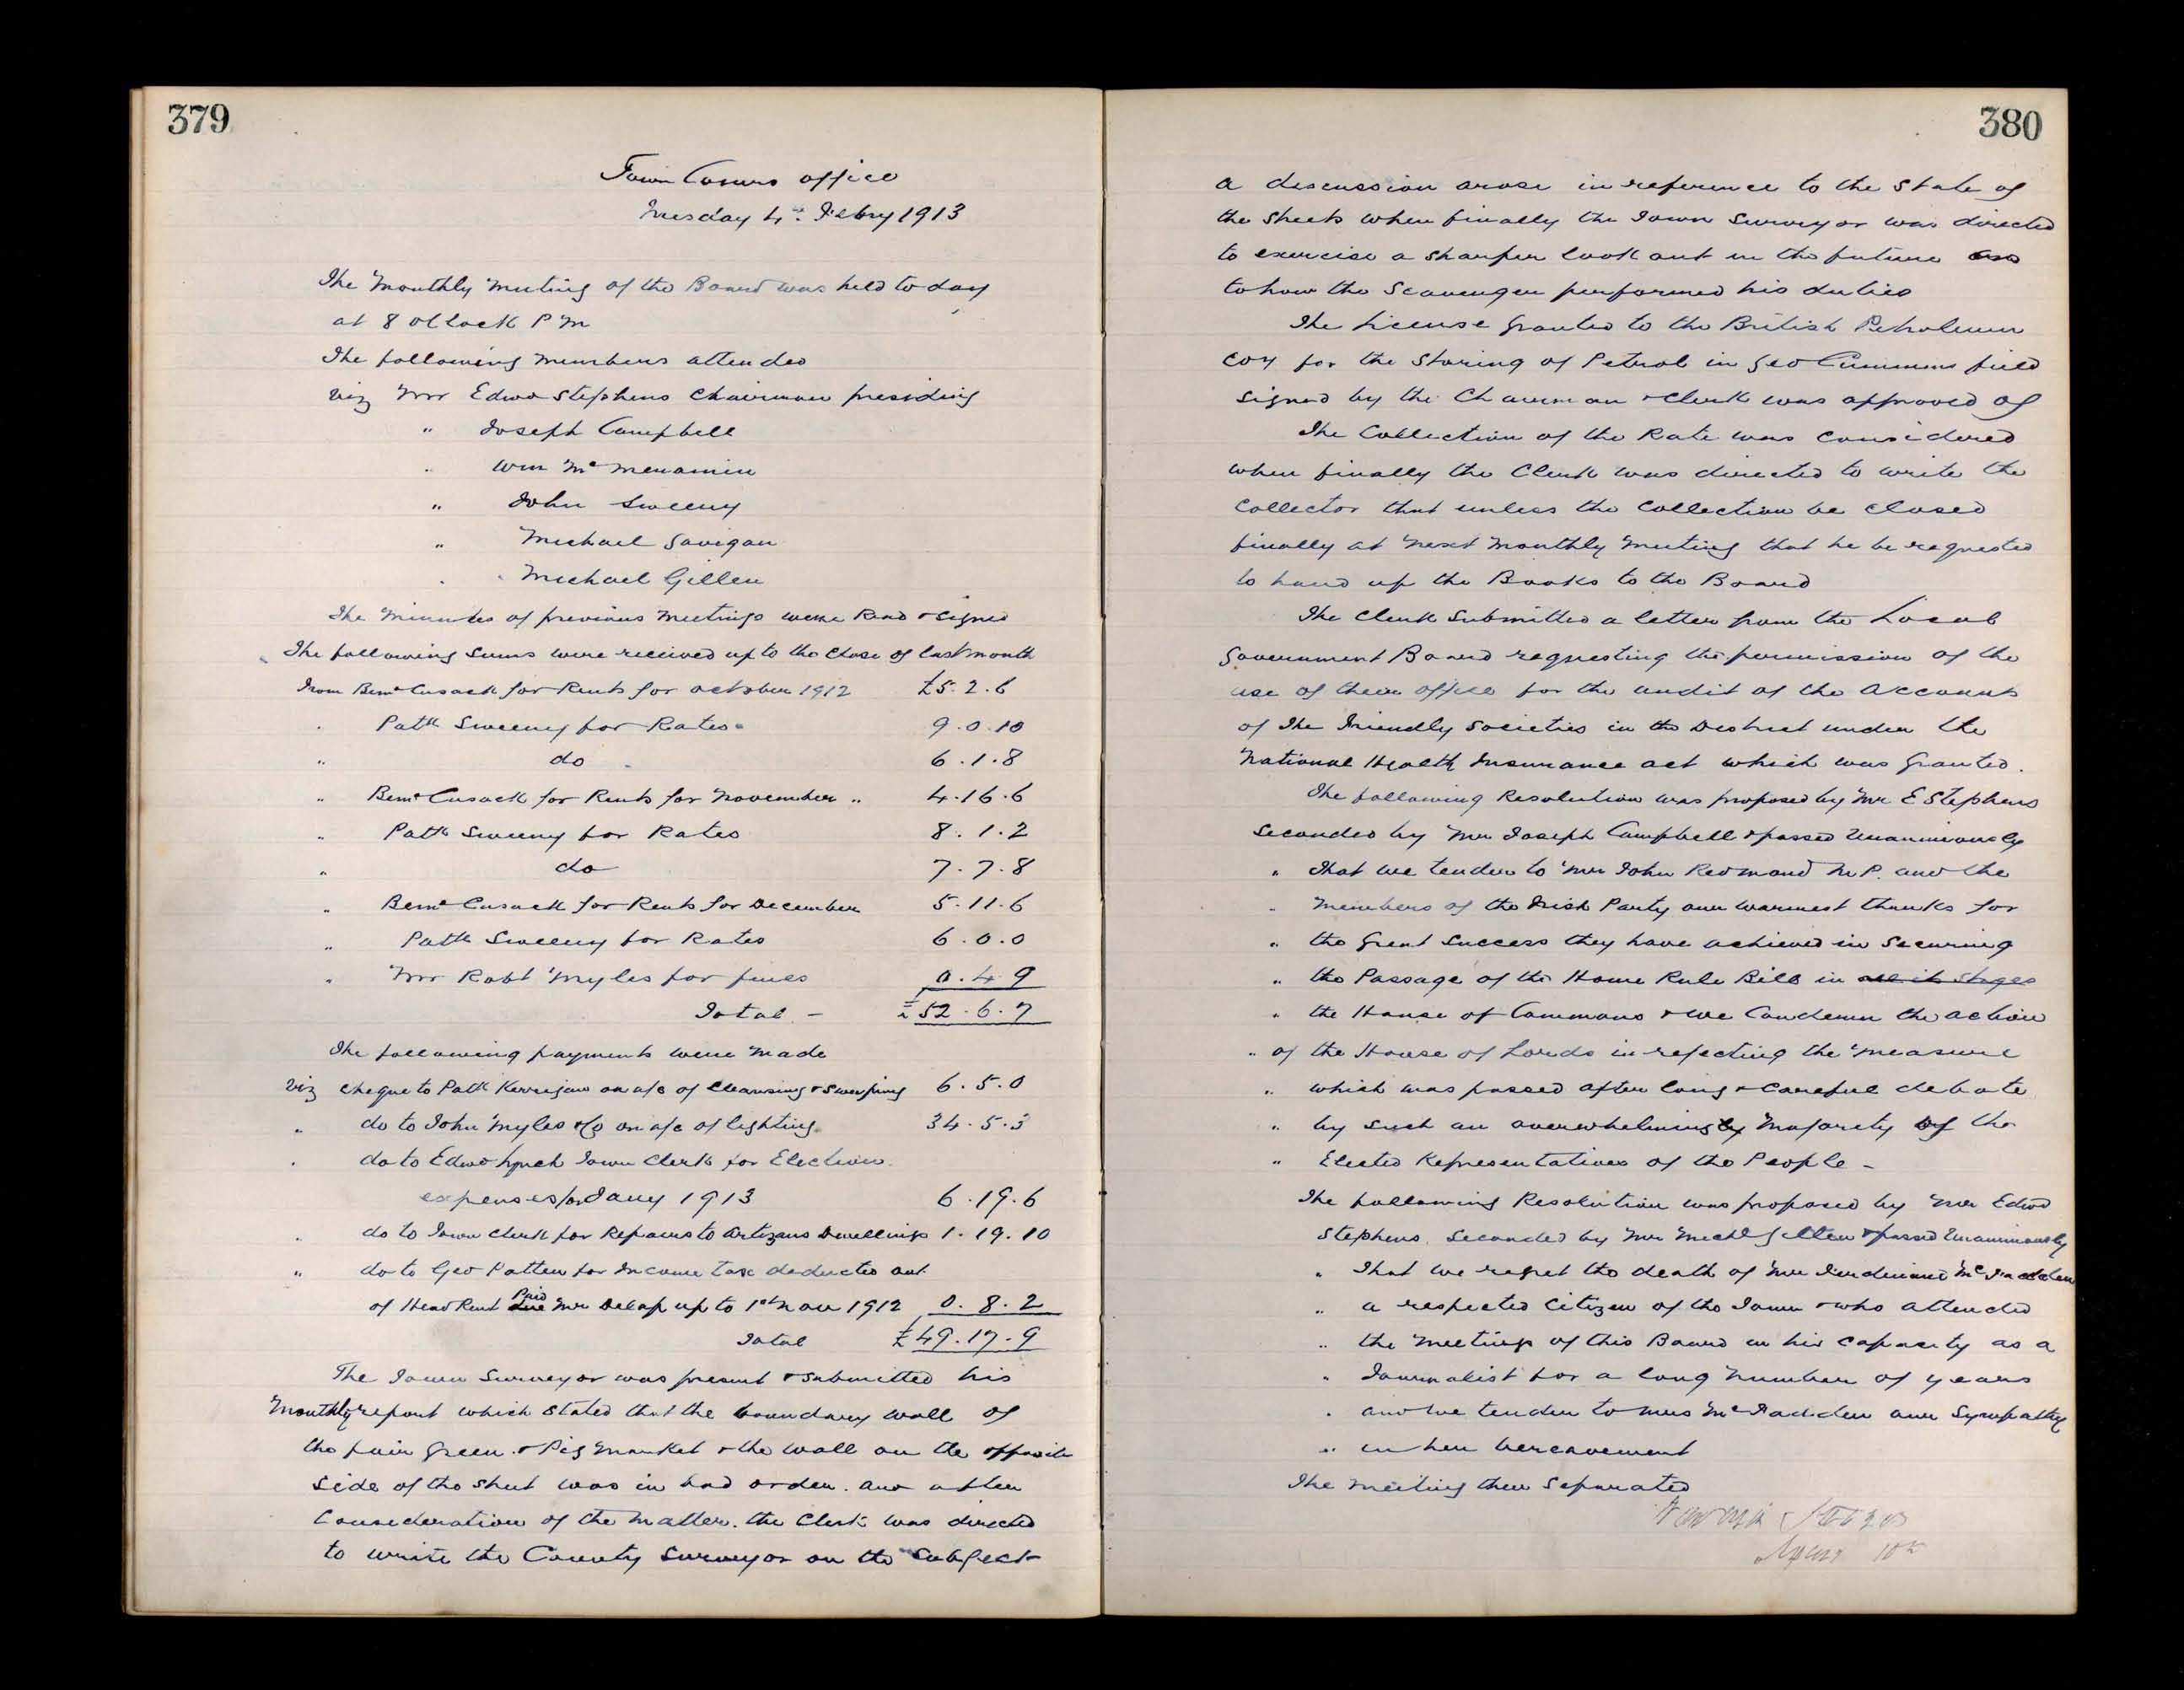 379
Town Comrs office
Tuesday 4th Febry 1913
The Monthly Meeting of the Board was held to day
at 8 oClock P M
The following Members attended
viz Mr Edwd Stephens Chairman presiding
" Joseph Campbell
" Wm McMenamin
" John Sweeny
" Michael Gavigan
" Michael Gillen
The Minutes of previous Meetings were Read & Signed
The following Sums were received up to the Close of last month
From Bernd Cusack for Rents for October 1912 £5.2.6
" Patk Sweeny for Rates 9.0.10
" do 6.1.8
" Bernd Cusack for Rents for November " 4.16.6
" Patk Sweeny for Rates 8.1.2
" do 7.7.8
" Bernd Cusack for Rents for December 5.11.6
" Patk Sweeny for Rates 6.0.0
" Mr Robt Myles for fines 0.4.9
Total - £52.6.7
The following payments were Made
viz cheque to Patk Kerrigan on a/c of Cleansing & Sweeping 6.5.0
" do to John Myles & Co on a/c of lighting 34.5.3
" do to Edwd Lynch Town Clerk for Election
expenses for Jany 1913 6.19.6
" do to Town Clerk for Repairs to Artizans Dwellings 1.19.10
" do to Geo Patten for Income Tax deducted out
of Head Rent Paid Mr Delap up to 1st Nov 1912 0.8.2
Total £49.17.9
The Town Surveyor was present & submitted his
Monthly report which Stated that the boundary wall of
the fair Green & Pig Market & the wall on the opposite
side of the Street was in bad order. and after
Consideration of the Matter. the Clerk was directed
to write the County Surveyor on the Subject
380
a discussion arose in reference to the State of
the Streets when finally the Town Surveyor was directed
to exercise a sharper look out in the future as
to how the Scavenger performed his duties
The License granted to the British Petroleum
Coy for the Storing of Petrol in Geo Cummins field
signed by the Chairman & Clerk was approved of
The Collection of the Rate was Considered
when finally the Clerk was directed to write the
Collector that unless the Collection be closed
finally at next Monthly Meeting that he be requested
to hand up the Books to the Board
The Clerk Submitted a letter from the Local
Government Board requesting the permission of the
use of their office for the audit of the Accounts
of The Friendly Societies in the District under the
National Health Insurance act which was Granted.
The following Resolution was proposed by Mr E Stephens
Seconded by Mr Joseph Campbell & passed Unanimously
" That we tender to Mr John Redmond M.P. and the
" Members of the Irish Party our Warmest thanks for
" the Great Success they have achieved in Securing
" the Passage of the Home Rule Bill in all its Stages
" the House of Commons & We Condemn the action
" of the House of Lords in rejecting the Measure
" which was passed after long & Careful debate
" by such an overwhelming Majority of the
" Elected Representatives of the People -
The following Resolution was proposed by Mr Edwd
Stephens Seconded by Mr Michl Gillen & passed Unanimously
" That we regret the death of Mr Ferdinand McFadden
" a respected Citizen of the Town & who attended
" the Meetings of this Board in his Capacity as a
" Journalist for a long Number of years
" and we tender to Mrs McFadden our Sympathy
" in her bereavement
The Meeting then Separated